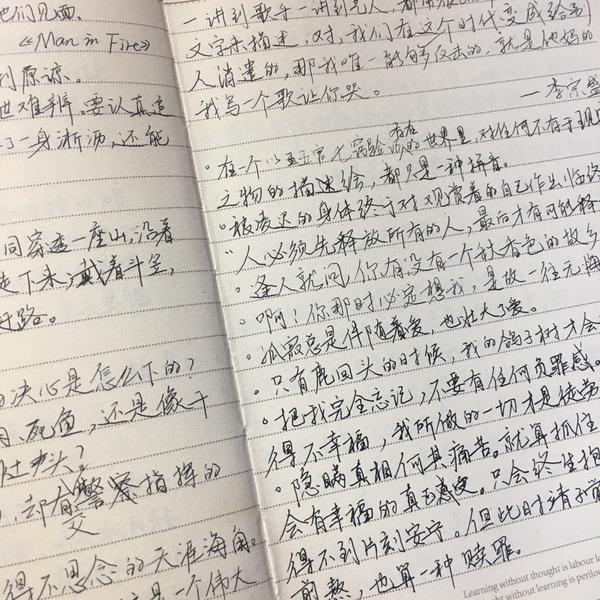 他们见面.
《Man in Fire》
到原谅。
世难辨，要认真
了一身淅沥，还能
同家
一座山，沿着
走下来，戴着斗笠，
路。
决心是怎么下的？
死鱼，还是像干
却有警察指挥的
交
得不思念的天涯海角。
是一个伟大
一讲到歌手一讲到
文字来描述，对，我们在这个时代变成给
人消遣的，那我唯一能够反击的，就是他妈的
我写一个歌让你哭。
——李宗盛
·在一个以
的世界里，对任何不存于现
之物的描述绘，都只是一种拼音。
·被凌迟的身体终于对观赏着的自己作出临终
·人必须先释放所有的人，最后才有可能释
·逢人就问，你有没有一个
色的故乡
·啊！你那时必定想我，是故一往无悔
·孤寂总是伴随着爱，也壮大了爱。
·只有鹿回头的时候，我的鸽子树才会
·把我完全忘记，不要有任何负罪感。
得不幸福，我所做的一切才是徒劳
·隐瞒真相何其痛苦。就算抓住
会有幸福的真
感受。只会终生抱
得不到片刻安宁。但此时请
煎熬，也算一种赎罪。
Learning without thought is labour l
ht without learning is perilo